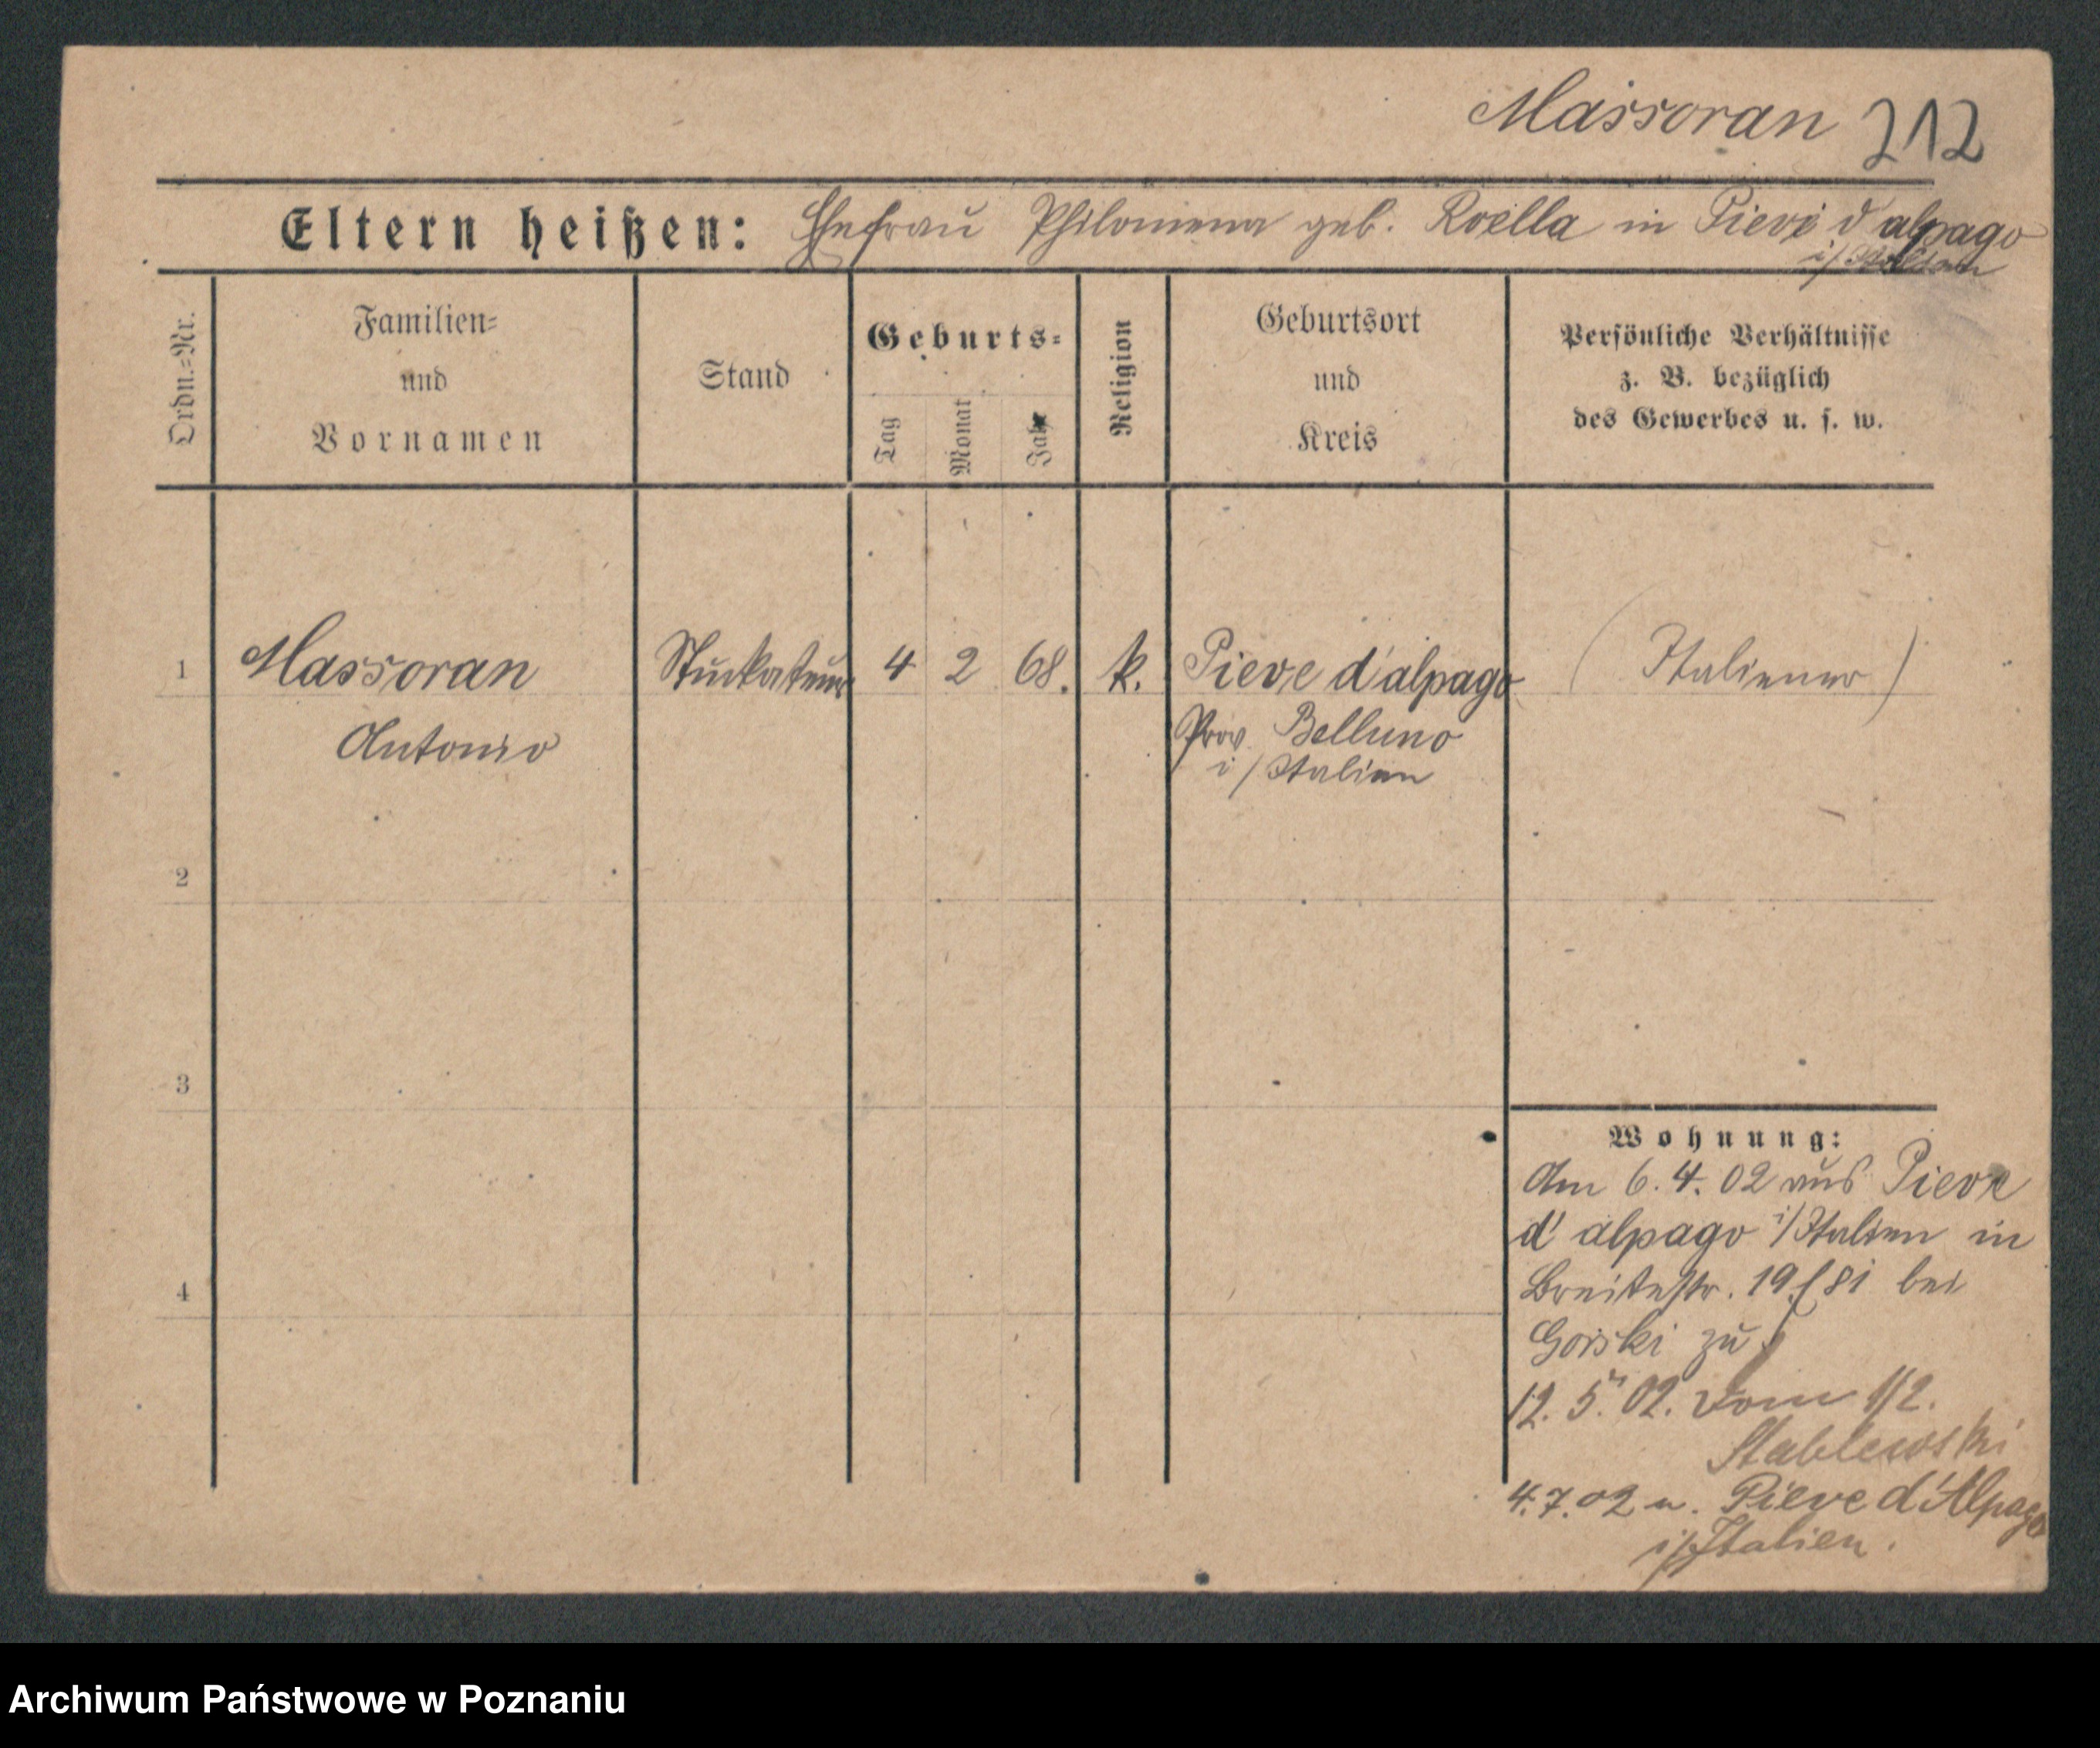 Massoran 212
Eltern heißen: Ehefrau Philomena geb. Roella in Pieve d'alpago
i/Italien
Ordn.=Nr.
Familien=
und
Vornamen
Stand
Geburts=
Tag
Monat
Jahr
Religion
Geburtsort
und
Kreis
Persönliche Verhältnisse
z. B. bezüglich
des Gewerbes u. s. w.
1 Massoran Stuckateur 4 2 68. k. Pieve d'alpago (Italiener)
Antonio Prov. Belluno
i/Italien
2
3
4
Wohnung:
Am 6.4.02 aus Pieve
d'alpago i/Italien in
Breitestr. 19 bei
Gorski zu
12. 5. 02. vom 1/2.
Stablewski
4.7.02 n. Pieve d'Alpago
i/Italien.
Archiwum Państwowe w Poznaniu